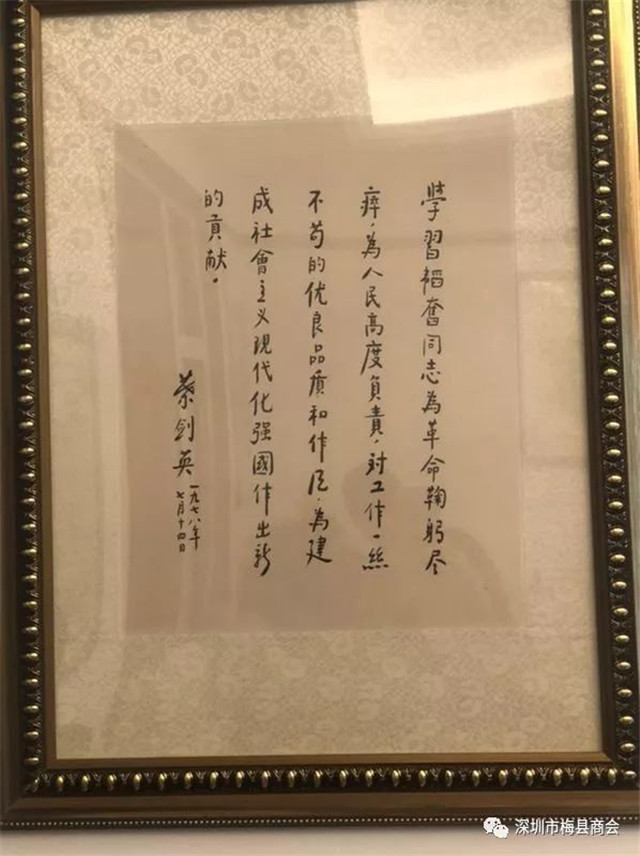 學習韜奮同志為革命鞠躬尽
瘁，為人民高度負責，対工作一絲
不苟的优良品质和作风，為建
成社會主义現代化强國作出新
的貢献。
葉剑英
一九七八年
七月十四日
深圳市梅县商会